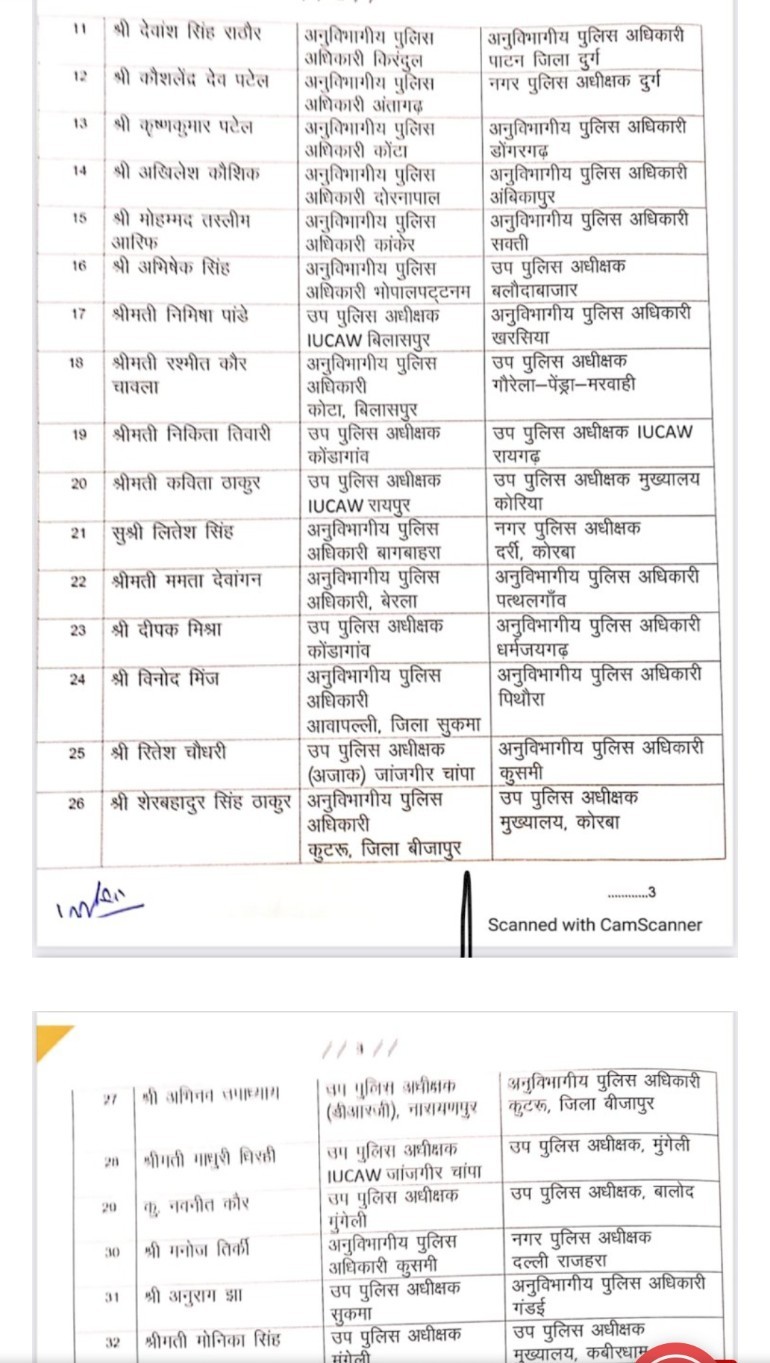 11 श्री देवांश सिंह राठौर अनुविभागीय पुलिस अनुविभागीय पुलिस अधिकारी
अधिकारी किरंदुल पाटन जिला दुर्ग
12 श्री कौशलेंद्र देव पटेल अनुविभागीय पुलिस नगर पुलिस अधीक्षक दुर्ग
अधिकारी अंतागढ़
13 श्री कृष्णकुमार पटेल अनुविभागीय पुलिस अनुविभागीय पुलिस अधिकारी
अधिकारी कोंटा डोंगरगढ़
14 श्री अखिलेश कौशिक अनुविभागीय पुलिस अनुविभागीय पुलिस अधिकारी
अधिकारी दोरनापाल अंबिकापुर
15 श्री मोहम्मद तस्लीम अनुविभागीय पुलिस अनुविभागीय पुलिस अधिकारी
आरिफ अधिकारी कांकेर सक्ती
16 श्री अभिषेक सिंह अनुविभागीय पुलिस उप पुलिस अधीक्षक
अधिकारी भोपालपट्टनम बलौदाबाजार
17 श्रीमती निमिषा पांडे उप पुलिस अधीक्षक अनुविभागीय पुलिस अधिकारी
IUCAW बिलासपुर खरसिया
18 श्रीमती रश्मीत कौर अनुविभागीय पुलिस उप पुलिस अधीक्षक
चावला अधिकारी गौरेला–पेंड्रा–मरवाही
कोटा, बिलासपुर
19 श्रीमती निकिता तिवारी उप पुलिस अधीक्षक उप पुलिस अधीक्षक IUCAW
कोंडागांव रायगढ़
20 श्रीमती कविता ठाकुर उप पुलिस अधीक्षक उप पुलिस अधीक्षक मुख्यालय
IUCAW रायपुर कोरिया
21 सुश्री लितेश सिंह अनुविभागीय पुलिस नगर पुलिस अधीक्षक
अधिकारी बागबाहरा दर्री, कोरबा
22 श्रीमती ममता देवांगन अनुविभागीय पुलिस अनुविभागीय पुलिस अधिकारी
अधिकारी, बेरला पत्थलगाँव
23 श्री दीपक मिश्रा उप पुलिस अधीक्षक अनुविभागीय पुलिस अधिकारी
कोंडागांव धर्मजयगढ़
24 श्री विनोद मिंज अनुविभागीय पुलिस अनुविभागीय पुलिस अधिकारी
अधिकारी पिथौरा
आवापल्ली, जिला सुकमा
25 श्री रितेश चौधरी उप पुलिस अधीक्षक अनुविभागीय पुलिस अधिकारी
(अजाक) जांजगीर चांपा कुसमी
26 श्री शेरबहादुर सिंह ठाकुर अनुविभागीय पुलिस उप पुलिस अधीक्षक
अधिकारी मुख्यालय, कोरबा
कुटरू, जिला बीजापुर
............3
Scanned with CamScanner
27 श्री अभिनव उपाध्याय उप पुलिस अधीक्षक अनुविभागीय पुलिस अधिकारी
(डीआरजी), नारायणपुर कुटरू, जिला बीजापुर
28 श्रीमती माधुरी धिरही उप पुलिस अधीक्षक उप पुलिस अधीक्षक, मुंगेली
IUCAW जांजगीर चांपा
29 कु. नवनीत कौर उप पुलिस अधीक्षक उप पुलिस अधीक्षक, बालोद
मुंगेली
30 श्री मनोज तिर्की अनुविभागीय पुलिस नगर पुलिस अधीक्षक
अधिकारी कुसमी दल्ली राजहरा
31 श्री अनुराग झा उप पुलिस अधीक्षक अनुविभागीय पुलिस अधिकारी
सुकमा गंडई
32 श्रीमती मोनिका सिंह उप पुलिस अधीक्षक उप पुलिस अधीक्षक
मुंगेली मुख्यालय, कबीरधाम